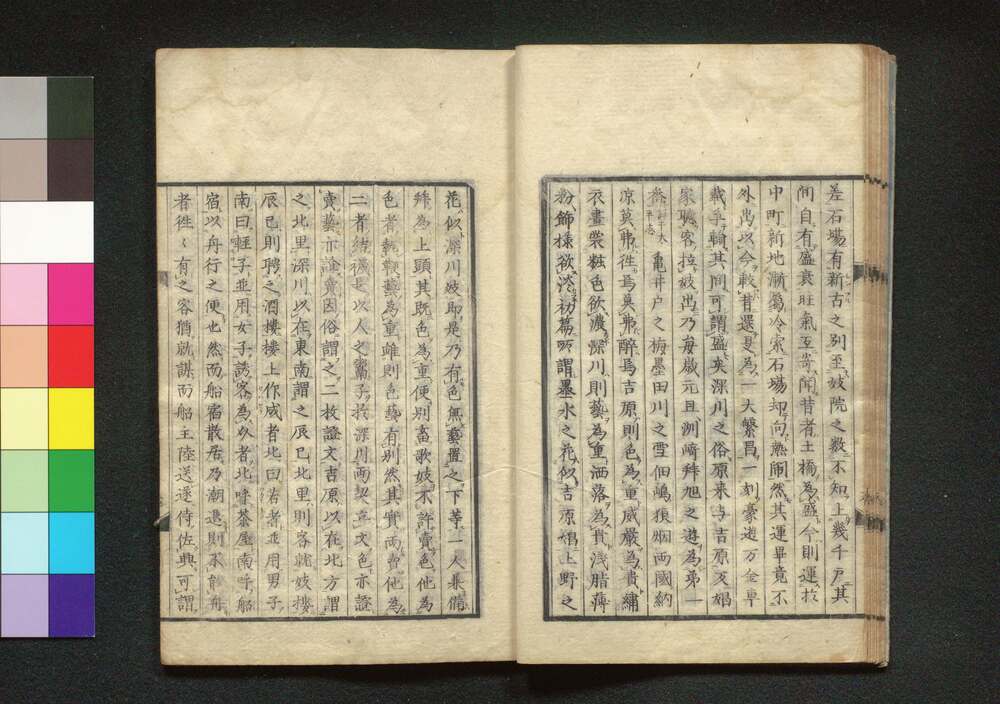 差石場有新古之別至妓院之数不知上幾千戸其
間自有盛衰旺氣互寄聞昔者土橋為盛今則運於
中町新地漸属冷索石場却向熱閙然其運畢竟不
外出以今較昔還是為一大繁昌一刻豪遊万金卑
載乎輪其間可謂盛矣深川之俗原来与吉原反娼
家聴客拉妓出乃毎歳元旦洲崎拜旭之遊為第一
亀井戸之梅墨田川之雪佃嶋狼烟両國納
凉莫弗往焉莫弗醉焉吉原則色為重威嚴為貴繍
衣畫裳粧色欲濃深川則藝為重洒落為貴浅脂薄
粉飾様欲淡初篇所謂墨水之花似吉原娼上野之
花似深川妓即是乃有色無藝置之下等一人兼備
稱為上頭其既色為重便別畜歌妓不許賣色他為
色者執藝為重雖則色藝有別然其實両賣他為
二者結襪是以人之鬻子於深川両契立文色亦證
賣藝亦證賣因俗謂之二枚證文吉原以在北方謂
之北里深川以在東南謂之辰巳北里則客就妓樓
辰巳則聘之酒樓樓上作威者北曰若者並用男子
南曰軽子並用女子誘客為以者北呼茶屋南呼船
宿以舟行之便也然而船宿散居乃潮退則不舟
者往〻有之客猶就謀而船主陸送逐侍佐興可謂